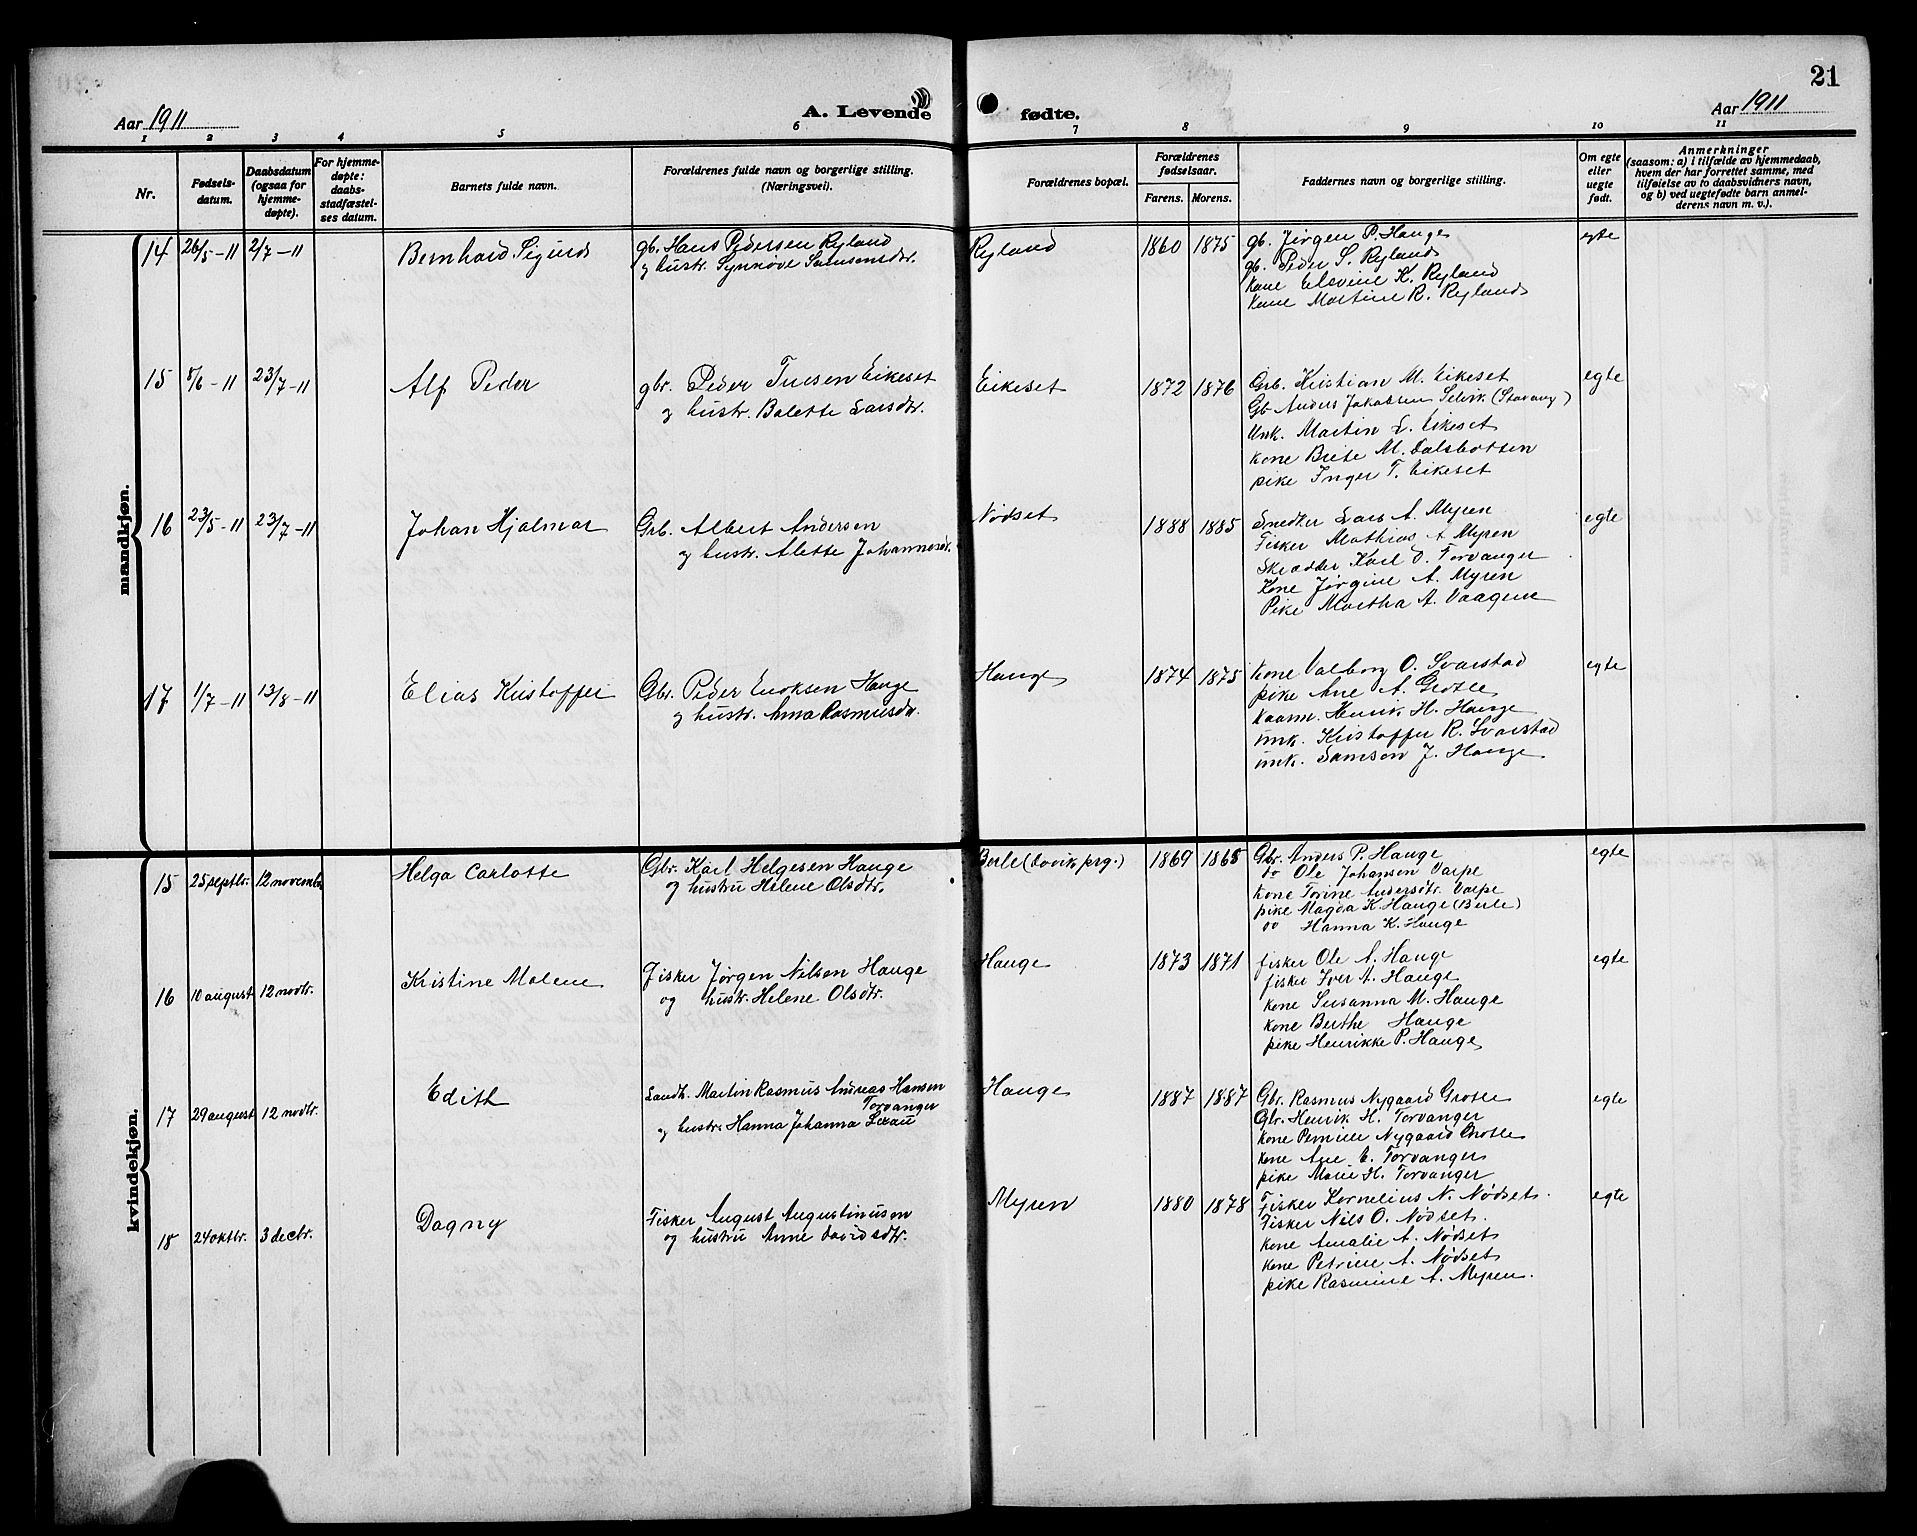 21
Aar 1911
A. Levende fødte.
Aar 1911
1 2 3 4 5 6 7 8 9 10 11
Nr.
Fødsels-
datum.
Daabsdatum
(ogsaa for
hjemme-
døpte).
For hjemme-
døpte:
daabs-
stadfæstel-
ses datum.
Barnets fulde navn.
Forældrenes fulde navn og borgerlige stilling.
(Næringsvei).
Forældrenes bopæl.
Forældrenes
fødselsaar.
Farens. Morens.
Faddernes navn og borgerlige stilling.
Om egte
eller
uegte
født.
Anmerkninger
(saasom: a) i tilfælde av hjemmedaab,
hvem der har forrettet samme, med
tilføielse av to daabsvidners navn,
og b) ved uegtefødte barn anmel-
derens navn m. v.).
mandkjøn.
14 26/5-11 2/7-11 Bernhard Sigurd
gb. Hans Pedersen Ryland
og hustr. Synnøve Samsonsdtr.
Ryland 1860 1875
gb. Jørgen P. Hauge
gb. Peder S. Ryland
Kone Elevine K. Ryland
Kone Martine R. Ryland
egte
15 8/6-11 23/7-11 Alf Peder
gbr. Peder Tuesen Eikeset
og hustr. Balette Larsdtr.
Eikeset 1872 1876
Grb. Kristian M. Eikeset
Gb Anders Jakobsen Selvik (Stavang)
Unk. Martin L. Eikeset
kone Brite M. Dalsbotten
pike Inger T. Eikeset
egte
16 23/5-11 23/7-11 Johan Hjalmar
Grb. Albert Andersen
og hustr. Alette Johannesdtr.
Nødset 1888 1885
Snedker Lars A. Myren
Fisker Mathias A Myren
Skrædder Karl O. Torvanger
Kone Jørgine A. Myren
Pike Martha A. Vaagene
egte
17 1/7-11 13/8-11 Elias Kristoffer
Gbr. Peder Enoksen Hauge
og hustr. Anna Rasmusdtr.
Hauge 1874 1875
Kone Valborg O. Svarstad
pike Ane A. Grotle
kaarm. Henrik H. Hauge
unk. Kristoffer R. Svarstad
unk. Samson J. Hauge
egte
kvindekjøn.
15 25 septbr. 12 novembr Helga Carlotte
Gbr. Karl Helgesen Hauge
og hustru Helene Olsdtr.
Berle (Davik prg.) 1869 1865
Gbr. Anders P. Hauge
do Ole Johansen Varpe
Kone Torine Andersdtr. Varpe
pike Magda K. Hauge (Berle)
do Hanna K. Hauge
egte
16 10 august 12 nvbr. Kristine Malene
Fisker Jørgen Nilsen Hauge
og hustr. Helene Olsdtr.
Hauge 1873 1871
fisker Ole A. Hauge
fisker Iver A. Hauge
kone Susanna M. Hauge
kone Berthe Hauge
pike Henrikke P. Hauge
egte
17 29 august 12 nvbr. Edith
Landh. Martin Rasmus Andreas Hansen
Torvanger
og hustr. Hanna Johanna
Hauge 1887 1887
Gbr. Rasmus Nygaard Grotle
Gbr. Henrik H. Torvanger
kone Pernille Nygaard Grotle
kone Ane E. Torvanger
pike Marie H. Torvanger
egte
18 24 oktbr. 3 decbr. Dagny
Fisker August Augustinusen
og hustru Anne Davidsdtr.
Myren 1880 1878
Fisker Kornelius N. Nødset.
Fisker Nils O. Nødset.
kone Amalie A. Nødset
kone Petrine A. Nødset
pike Rasmine A. Myren.
egte